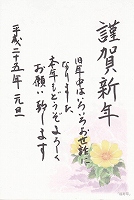 謹賀新年
旧年中はいろいろお世話に
なりました
本年もどうぞよろしく
お願い致します
平成二十五年 元旦